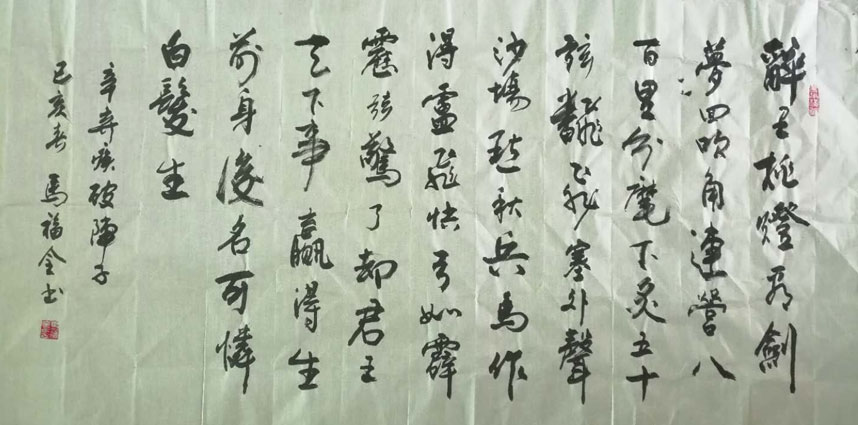 醉里挑燈看劍
夢回吹角連營八
百里分麾下炙五十
弦飜飛塞外聲
沙場點秋兵馬作
得盧飛快弓如霹
靂弦驚了却君王
天下事贏得生
前身後名可憐
白髮生
辛弃疾破陣子
己亥春馬福金书